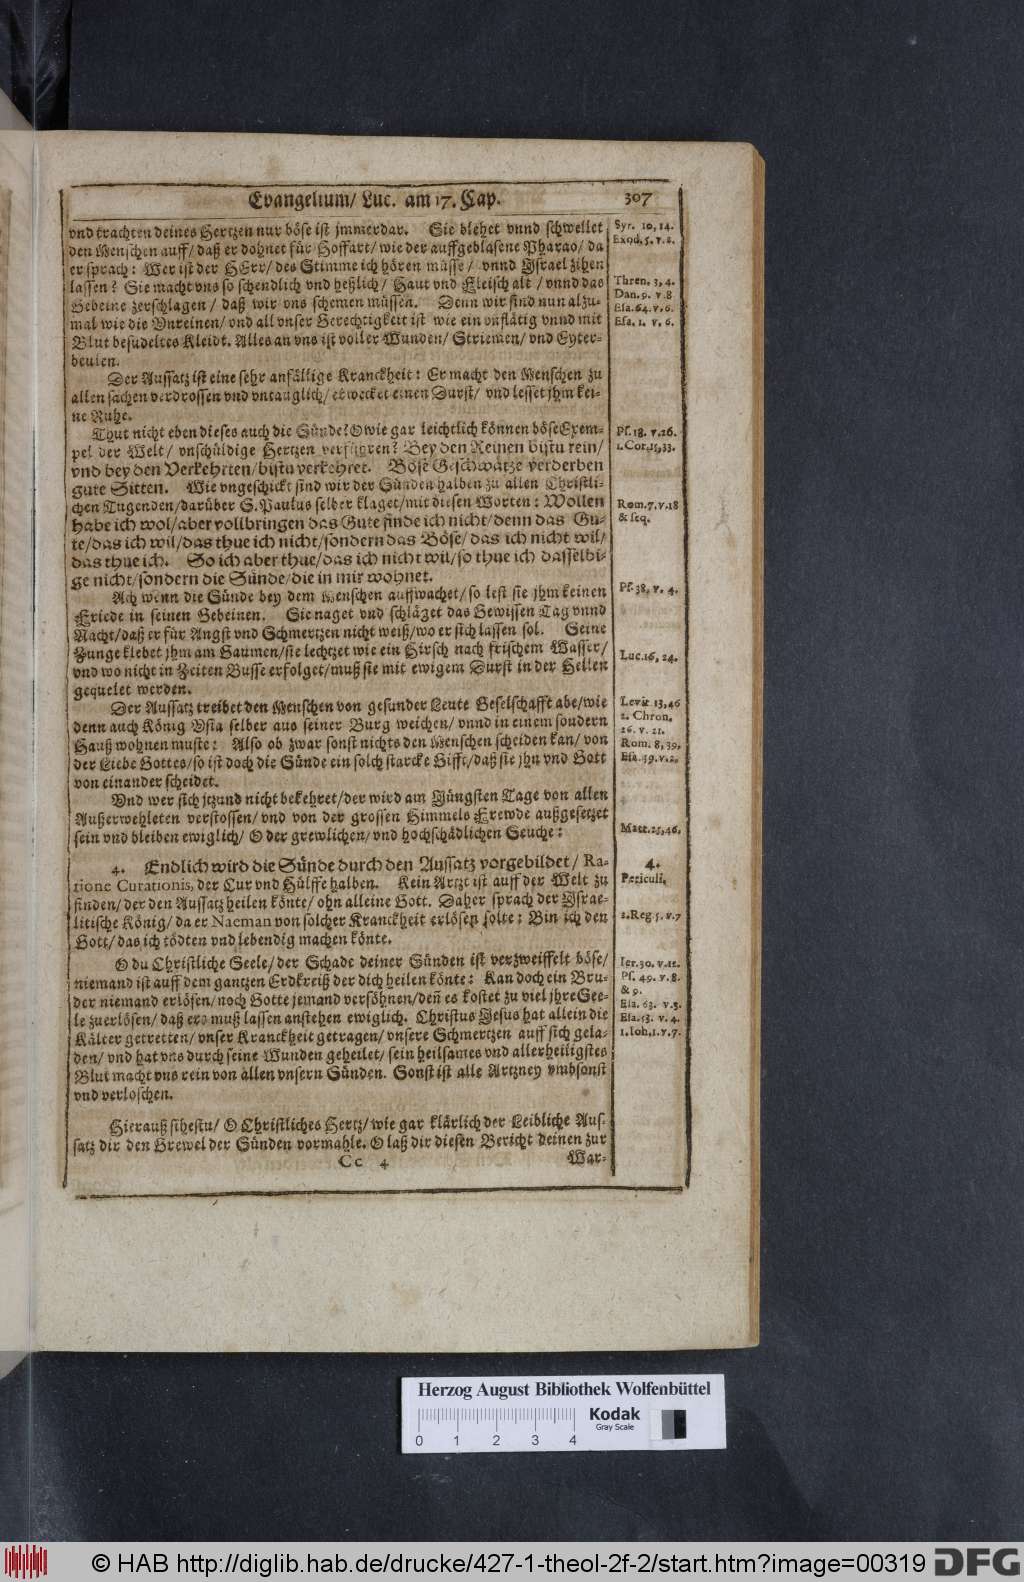 Evangelium/ Luc. am 17. Cap. 307
vnd trachten deines Hertzen nur böse ist jmmerdar. Sie blehet vnnd schwellet
den Menschen auff/ daß er dohnet für Hoffart/ wie der auffgeblasene Pharao/ da
er sprach: Wer ist der HErr/ des Stimme ich hören müsse/ vnnd Israel zihen
lassen? Sie macht vns so schendlich vnd heßlich/ Haut vnd Fleisch alt/ vnnd das
Gebeine zerschlagen/ daß wir vns schemen müssen. Denn wir sind nun alzu-
mal wie die Vnreinen/ vnd all vnser Gerechtigkeit ist wie ein vnflätig vnnd mit
Blut besudeltes Kleidt. Alles an vns ist voller Wunden/ Striemen/ vnd Eyter-
beulen.
Der Aussatz ist eine sehr anfällige Kranckheit: Er macht den Menschen zu
allen sachen verdrossen vnd vntauglich/ erwecket einen Durst/ vnd lesset jhm kei-
ne Ruhe.
Thut nicht eben dieses auch die Sünde? O wie gar leichtlich können böse Exem-
pel der Welt/ vnschüldige Hertzen verführen? Bey den Reinen bistu rein/
vnd bey den Verkehrten/ bistu verkehret. Böse Geschwätze verderben
gute Sitten. Wie vngeschickt sind wir der Sünden halben zu allen Christli-
chen Tugenden/ darüber S. Paulus selber klaget/ mit diesen Worten: Wollen
habe ich wol/ aber vollbringen das Gute finde ich nicht/ denn das Gu-
te/ das ich wil/ das thue ich nicht/ sondern das Böse/ das ich nicht wil/
das thue ich. So ich aber thue/ das ich nicht wil/ so thue ich dasselbi-
ge nicht/ sondern die Sünde/ die in mir wohnet.
Ach wenn die Sünde bey dem Menschen auffwachet/ so lest sie jhm keinen
Friede in seinen Gebeinen. Sie naget vnd schläget das Gewissen Tag vnnd
Nacht/ daß er für Angst vnd Schmertzen nicht weiß/ wo er sich lassen sol. Seine
Zunge klebet jhm am Gaumen/ sie lechtzet wie ein Hirsch nach frischem Wasser/
vnd wo nicht in Zeiten Busse erfolget/ muß sie mit ewigem Durst in der Hellen
gequelet werden.
Der Aussatz treibet den Menschen von gesunder Leute Geselschafft abe/ wie
denn auch König Vsia selber aus seiner Burg weichen/ vnnd in einem sondern
Hauß wohnen muste: Also ob zwar sonst nichts den Menschen scheiden kan/ von
der Liebe Gottes/ so ist doch die Sünde ein solch starcke Gifft/ daß sie jhn vnd Gott
von einander scheidet.
Vnd wer sich jtzund nicht bekehret/ der wird am Jüngsten Tage von allen
Außerwehleten verstossen/ vnd von der grossen Himmels Frewde außgesetzet
sein vnd bleiben ewiglich/ O der grewlichen/ vnd hochschädlichen Seuche:
4. Endlich wird die Sünde durch den Aussatz vorgebildet/ Ra-
tione Curationis, der Cur vnd Hülffe halben. Kein Artzt ist auff der Welt zu
finden/ der den Aussatz heilen könte/ ohn alleine Gott. Daher sprach der Israe-
litische König/ da er Naeman von solcher Kranckheit erlösen solte: Bin ich den
Gott/ das ich tödten vnd lebendig machen könte.
O du Christliche Seele/ der Schade deiner Sünden ist verzweiffelt böse/
niemand ist auff dem gantzen Erdkreiß der dich heilen könte: Kan doch ein Bru-
der niemand erlösen/ noch Gotte jemand versöhnen/ deñ es kostet zu viel jhre See-
le zuerlösen/ daß ers muß lassen anstehen ewiglich. Christus Jesus hat allein die
Kälter getretten/ vnser Kranckheit getragen/ vnsere Schmertzen auff sich gela-
den/ vnd hat vns durch seine Wunden geheilet/ sein heilsames vnd allerheiligstes
Blut macht vns rein von allen vnsern Sünden. Sonst ist alle Artzney vmbsonst
vnd verloschen.
Hierauß sihestu/ O Christliches Hertz/ wie gar klärlich der Leibliche Aus-
satz dir den Grewel der Sünden vormahle. O laß dir diesen Bericht deinen zur
Cc 4 War-
Syr. 10, 14.
Exod. 5. v. 2.
Thren. 3, 4.
Dan. 9. v. 8
Esa. 64. v. 6.
Esa. 1. v. 6.
Ps. 18. v. 26.
1. Cor. 15, 33.
Rom. 7. v. 18
& seq.
Ps. 38, v. 4.
Luc. 16, 24.
Levit 13, 46
2. Chron.
26. v. 21.
Rom. 8, 39.
Esa. 59. v. 2.
Matt. 25, 46.
4.
Periculi.
2. Reg. 5. v. 7
Ier. 30. v. 12.
Ps. 49. v. 8.
& 9.
Esa. 63. v. 3.
Esa. 53. v. 4.
1. Ioh. 1. v. 7.
Herzog August Bibliothek Wolfenbüttel
Kodak
Gray Scale
0 1 2 3 4
© HAB http://diglib.hab.de/drucke/427-1-theol-2f-2/start.htm?image=00319 DFG